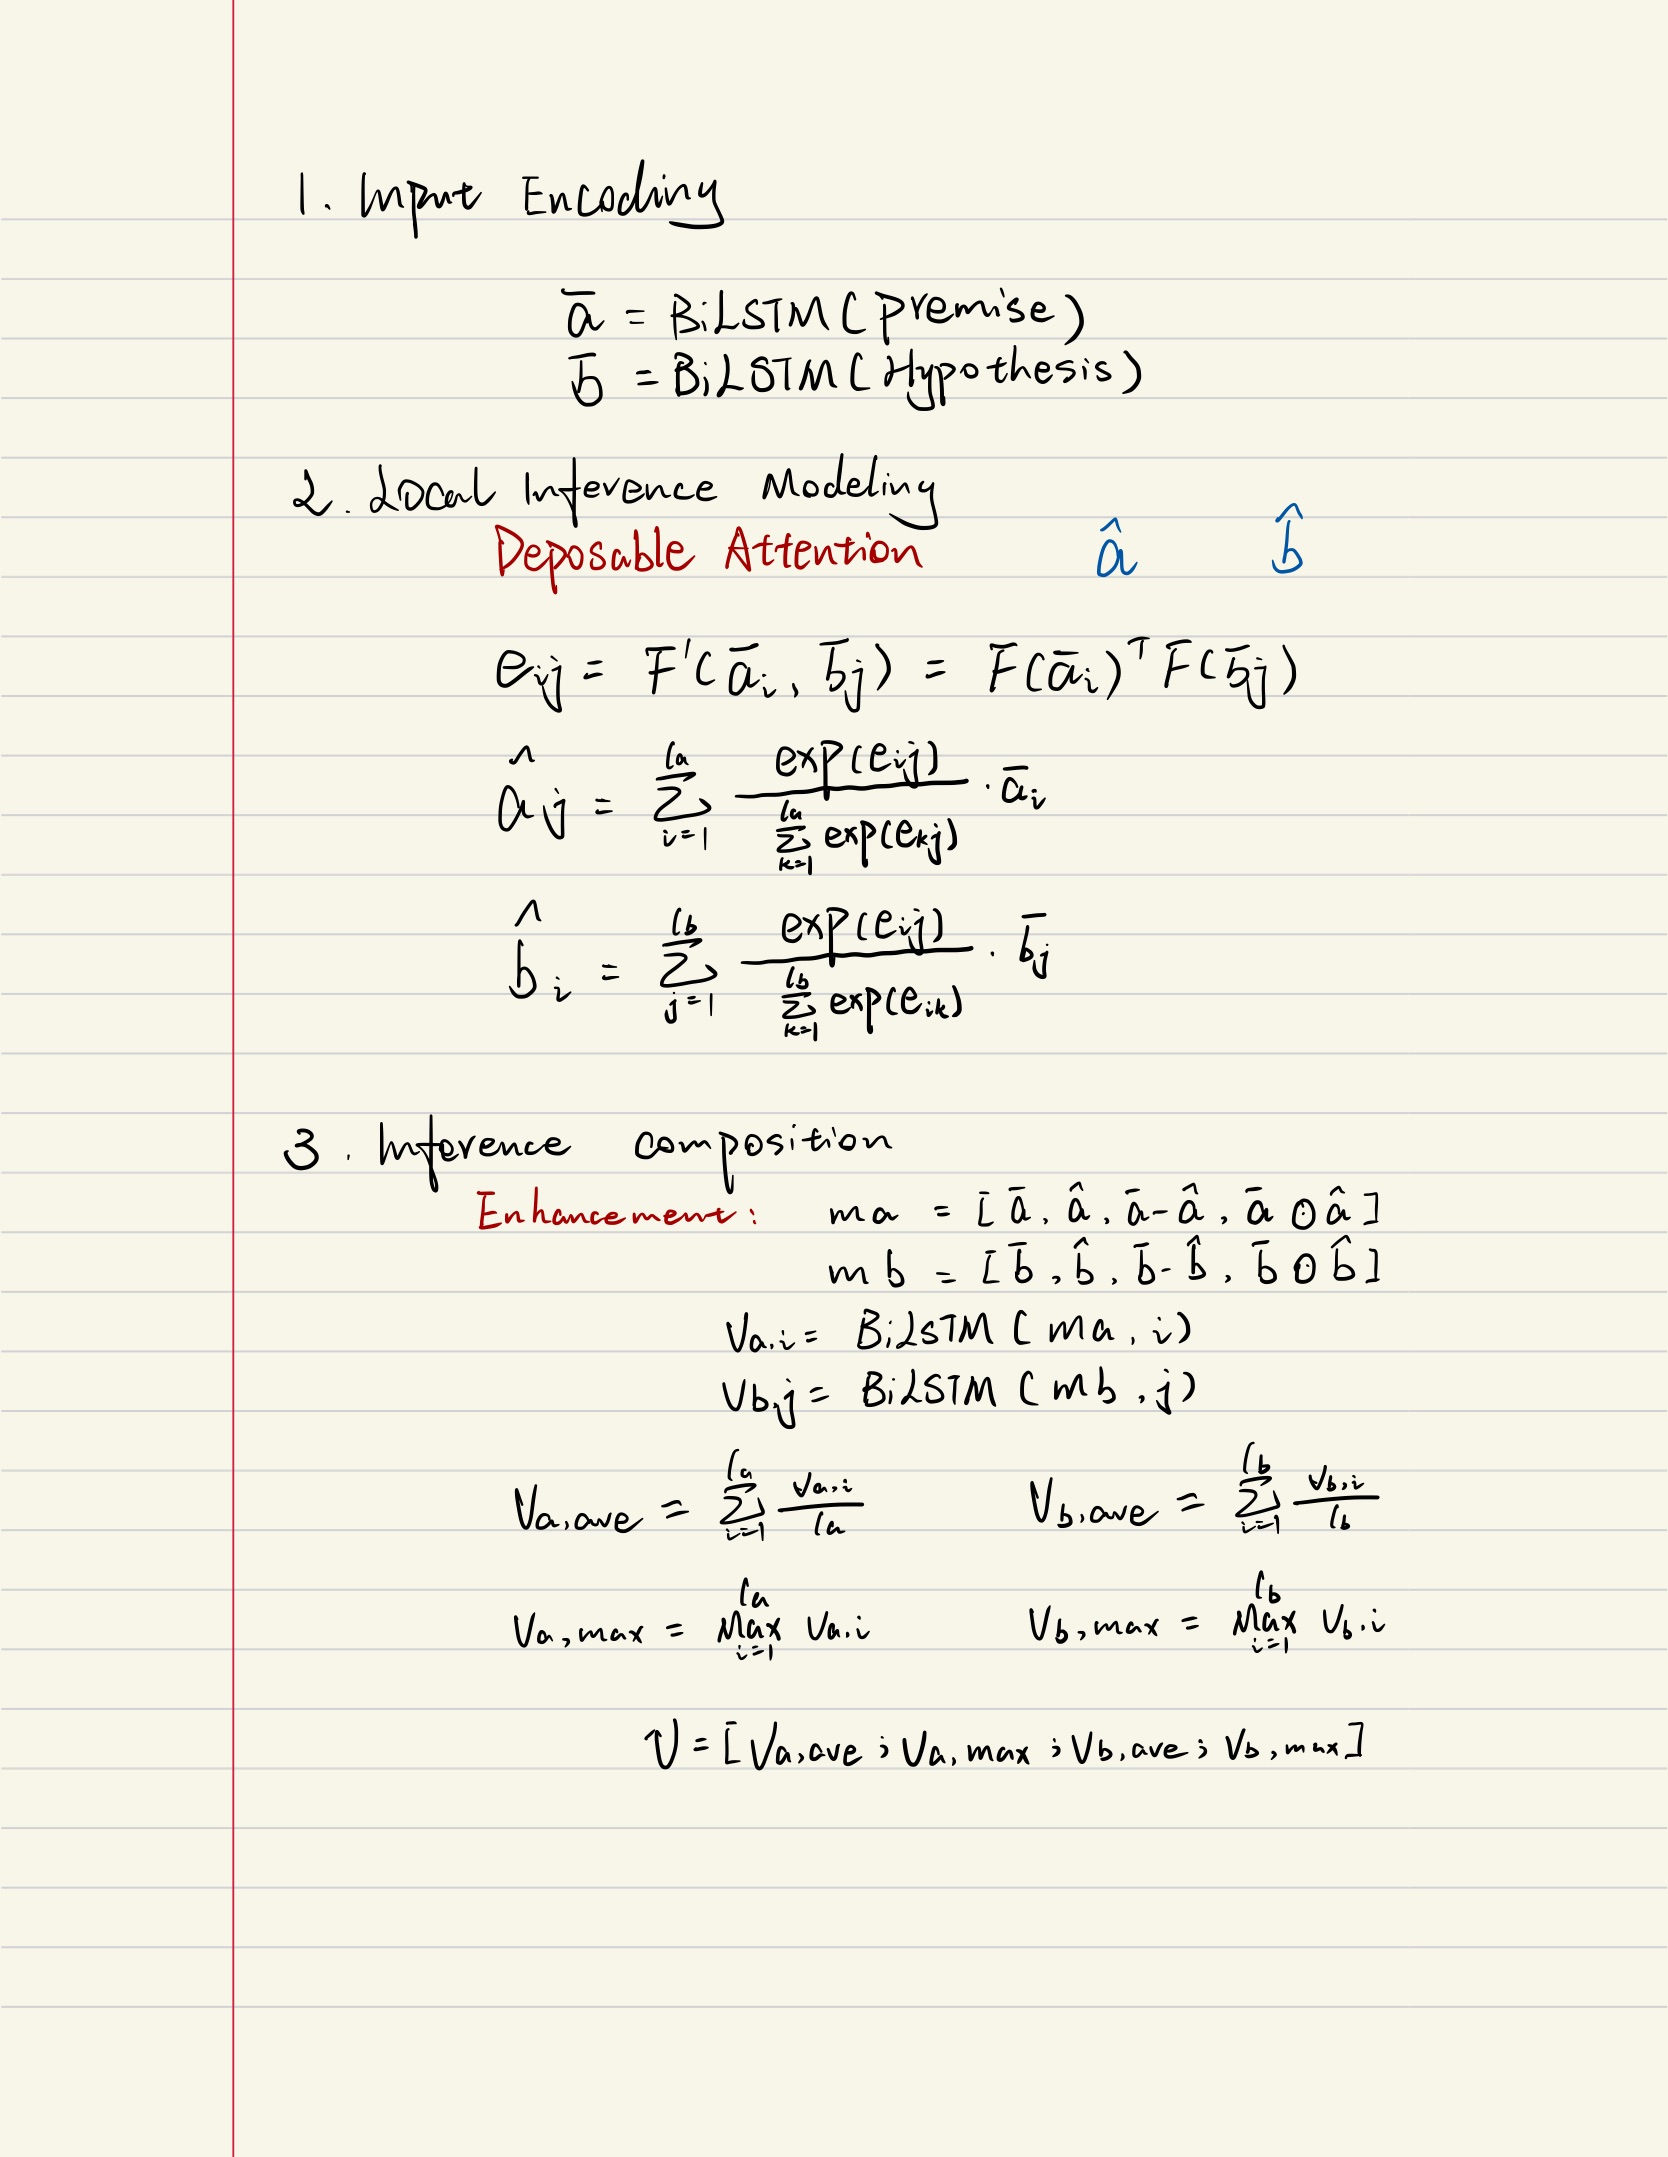 1. Input Encoding
ā = BiLSTM(premise)
b̄ = BiLSTM(Hypothesis)
2. Local Inference Modeling
Deposable Attention â b̂
e_ij = F'(ā_i, b̄_j) = F(ā_i)^T F(b̄_j)
â_j = ∑_{i=1}^{la} exp(e_ij) / ∑_{k=1}^{la} exp(e_kj) · ā_i
b̂_i = ∑_{j=1}^{lb} exp(e_ij) / ∑_{k=1}^{lb} exp(e_ik) · b̄_j
3. Inference composition
Enhancement: ma = [ā, â, ā-â, ā⊙â]
mb = [b̄, b̂, b̄-b̂, b̄⊙b̂]
Va,i = BiLSTM(ma, i)
Vb,j = BiLSTM(mb, j)
Va,ave = ∑_{i=1}^{la} Va,i / la Vb,ave = ∑_{i=1}^{lb} Vb,i / lb
Va,max = Max_{i=1}^{la} Va,i Vb,max = Max_{i=1}^{lb} Vb,i
V = [Va,ave; Va,max; Vb,ave; Vb,max]